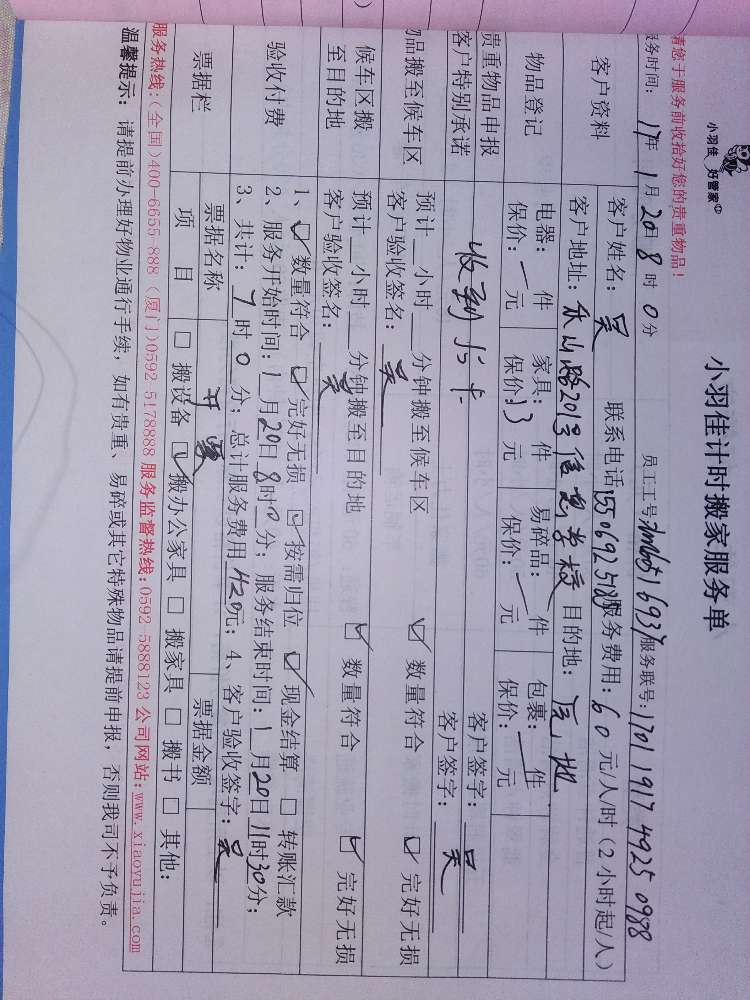 小羽佳 好管家
小羽佳计时搬家服务单
请您于服务前收拾好您的贵重物品！
服务时间：17年1月20日8时0分 员工工号 服务联号：1701 1917 4925 0988
客户资料
客户姓名：吴 联系电话 服务费用：60元/人/时（2小时起/人）
客户地址： 山路201号信息学校 目的地：原地
物品登记
电器： 件 家具： 件 易碎品：一件 包裹：一件
保价：一元 保价： 元 保价：一元 保价： 元
贵重物品申报 客户签字：吴
客户特别承诺 收到 卡 客户签字：吴
物品搬至候车区
预计 小时 分钟搬至候车区 ☑ 数量符合 ☑ 完好无损
客户验收签名：吴
候车区搬至目的地
预计 小时 分钟搬至目的地 ☑ 数量符合 ☑ 完好无损
客户验收签名：吴
验收付费
1、☑ 数量符合 ☑ 完好无损 ☑ 按需归位 ☑ 现金结算 □ 转账汇款
2、服务开始时间：1月20日8时0分；服务结束时间：1月20日11时30分；
3、共计：7时0分；总计服务费用420元；4、客户验收签字：吴
票据栏
票据名称 开票 票据金额
项目 □ 搬设备 ☑ 搬办公家具 □ 搬家具 □ 搬书 □ 其他：
服务热线：（全国）400-6655-888（厦门）0592-5178888 服务监督热线：0592-5888123 公司网站：www.xiaoyujia.com
温馨提示：请提前办理好物业通行手续，如有贵重、易碎或其它特殊物品请提前申报，否则我司不予负责。